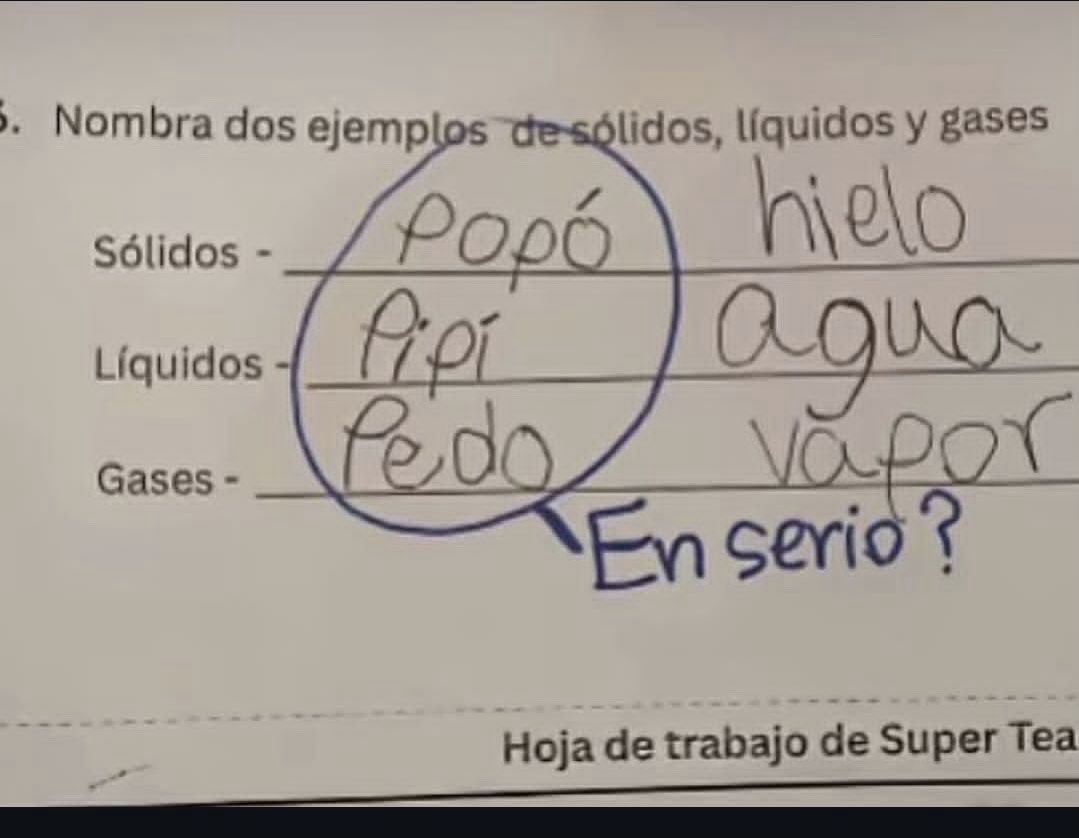 . Nombra dos ejemplos de sólidos, líquidos y gases
Sólidos - Popó hielo
Líquidos - Pipí agua
Gases - Pedo vapor
En serio?
Hoja de trabajo de Super Tea